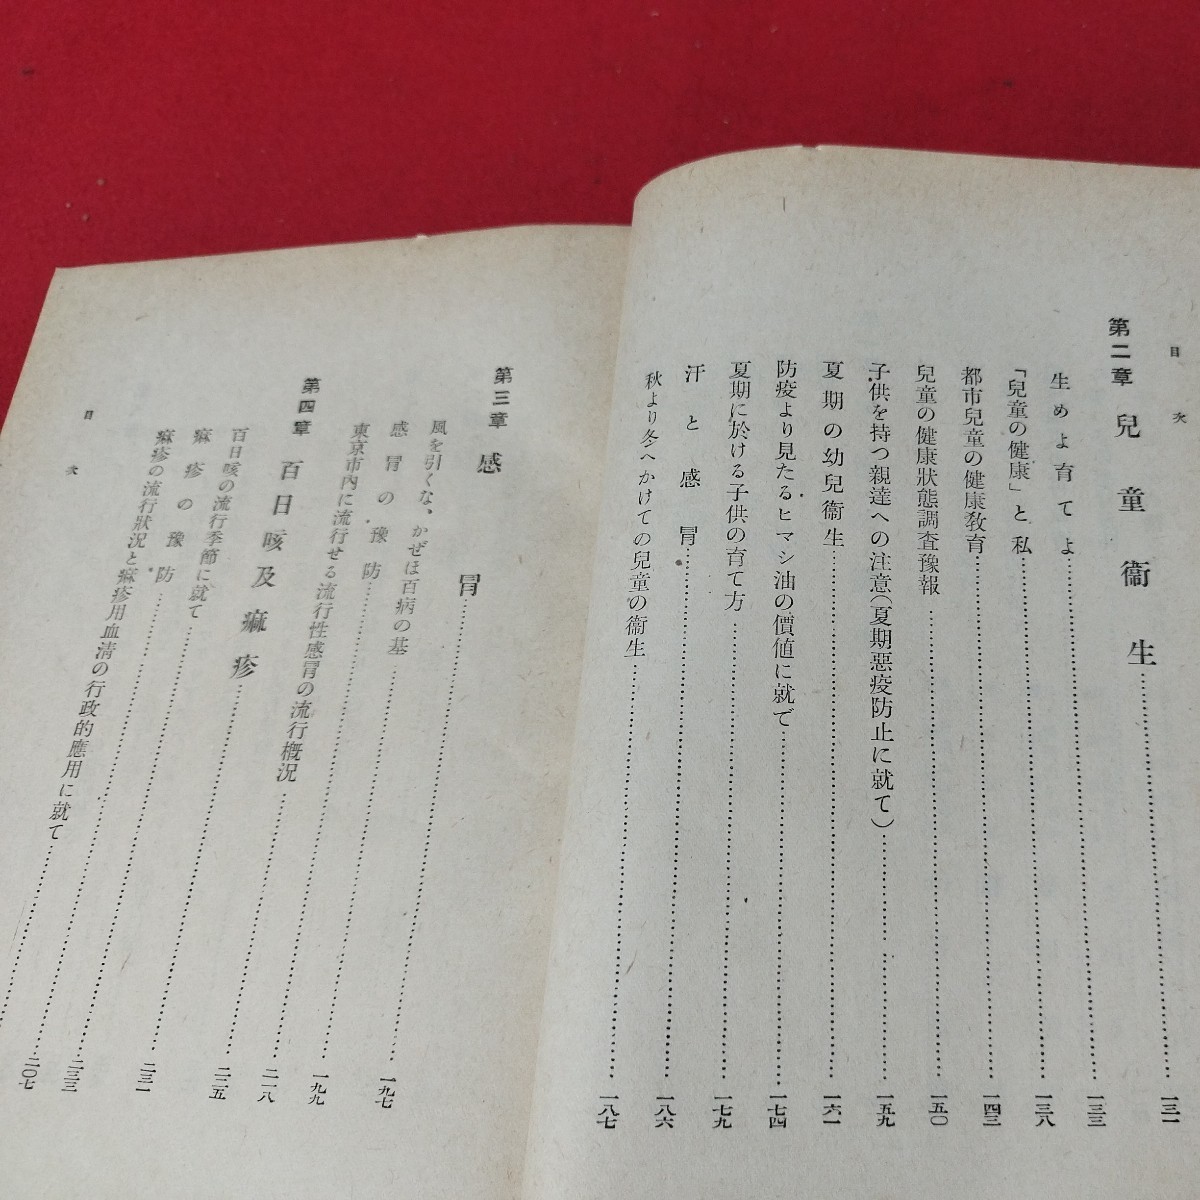 目次
第二章 兒童衞生……………一三一
生めよ育てよ……………一三三
「兒童の健康」と私……………一三八
都市兒童の健康敎育……………一四三
兒童の健康狀態調査豫報……………一五〇
子供を持つ親達への注意(夏期惡疫防止に就て)……………一五九
夏期の幼兒衞生……………一六一
防疫より見たるヒマシ油の價値に就で……………一七四
夏期に於ける子供の育て方……………一七九
汗と感冒……………一八六
秋より冬へかけての兒童の衞生……………一八七
第三章 感冒……………一九七
風を引くな、かぜは百病の基……………一九九
感冒の豫防……………二一八
東京市內に流行せる流行性感冒の流行槪況……………二二五
第四章 百日咳及痲疹……………二三一
百日咳の流行季節に就て……………二三三
痲疹の豫防……………二〇七
痲疹の流行狀況と痲疹用血淸の行政的應用に就て……………
目次